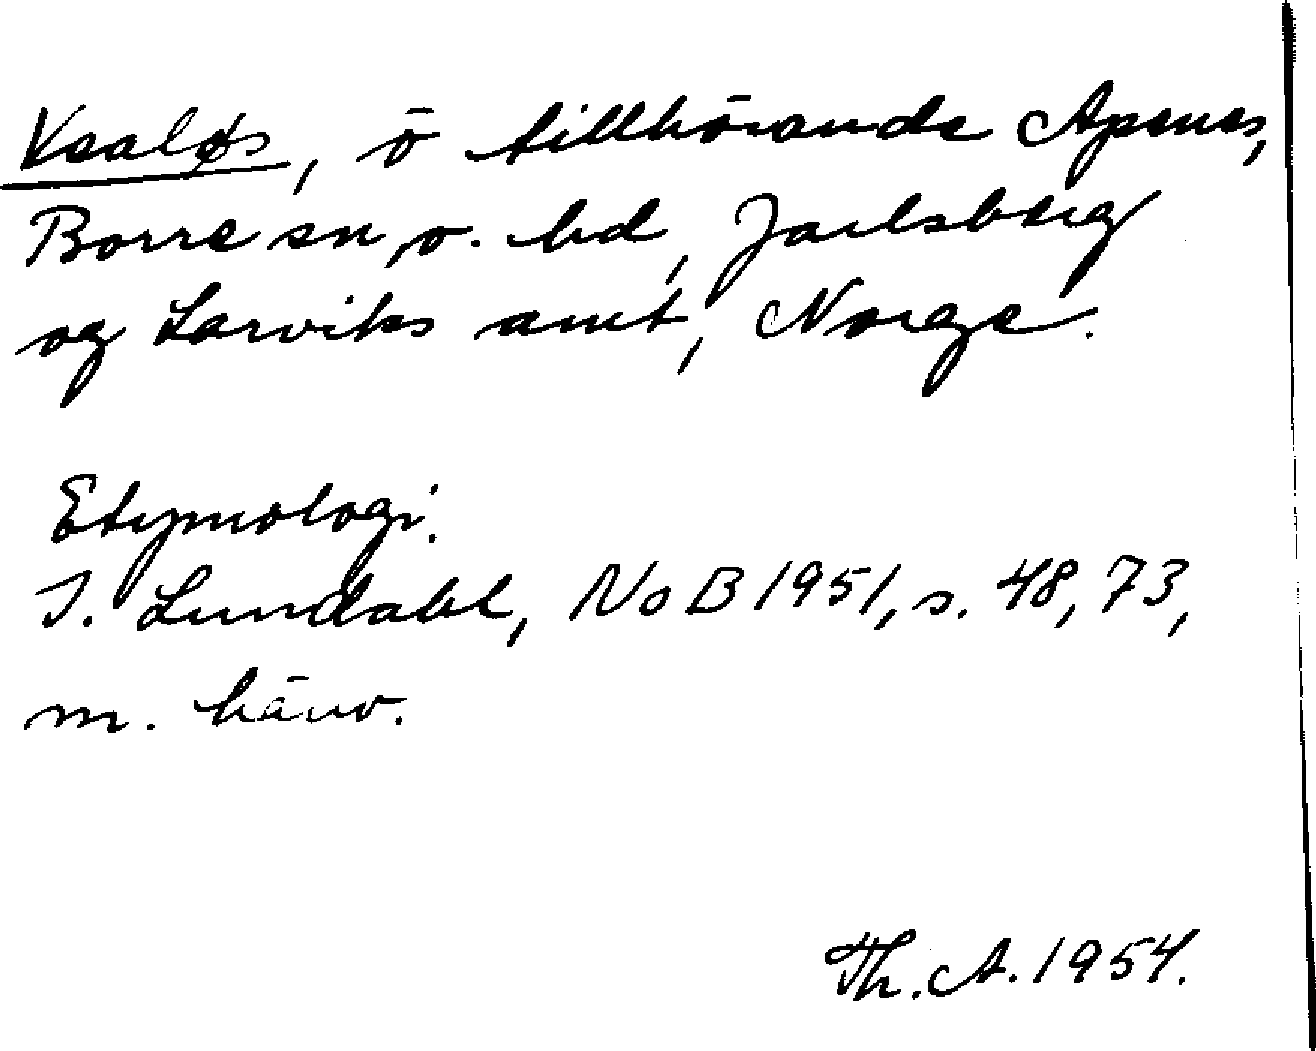 Vealøs, ö tillhörande Apenes,
Borre sn o. hd, Jarlsberg
og Larviks amt, Norge.
Etymologi.
I. Lundahl, NoB 1951, s. 48, 73,
m. hänv.
Th. A. 1954.